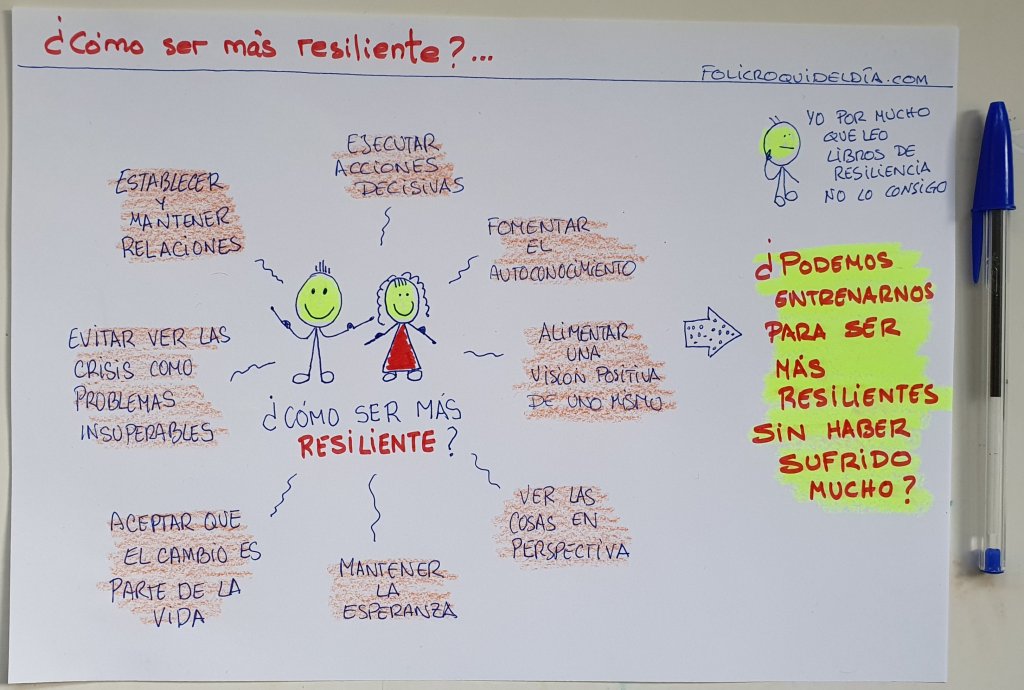 ¿Cómo ser más resiliente?...
FOLICROQUIDELDÍA.COM
YO POR MUCHO
QUE LEO
LIBROS DE
RESILIENCIA
NO LO CONSIGO
EJECUTAR
ACCIONES
DECISIVAS
ESTABLECER
Y
MANTENER
RELACIONES
FOMENTAR
EL
AUTOCONOCIMIENTO
EVITAR VER LAS
CRISIS COMO
PROBLEMAS
INSUPERABLES
ALIMENTAR
UNA
VISION POSITIVA
DE UNO MISMO
¿CÓMO SER MÁS
RESILIENTE?
ACEPTAR QUE
EL CAMBIO ES
PARTE DE LA
VIDA
MANTENER
LA
ESPERANZA
VER LAS
COSAS EN
PERSPECTIVA
¿PODEMOS
ENTRENARNOS
PARA SER
MÁS
RESILIENTES
SIN HABER
SUFRIDO
MUCHO?